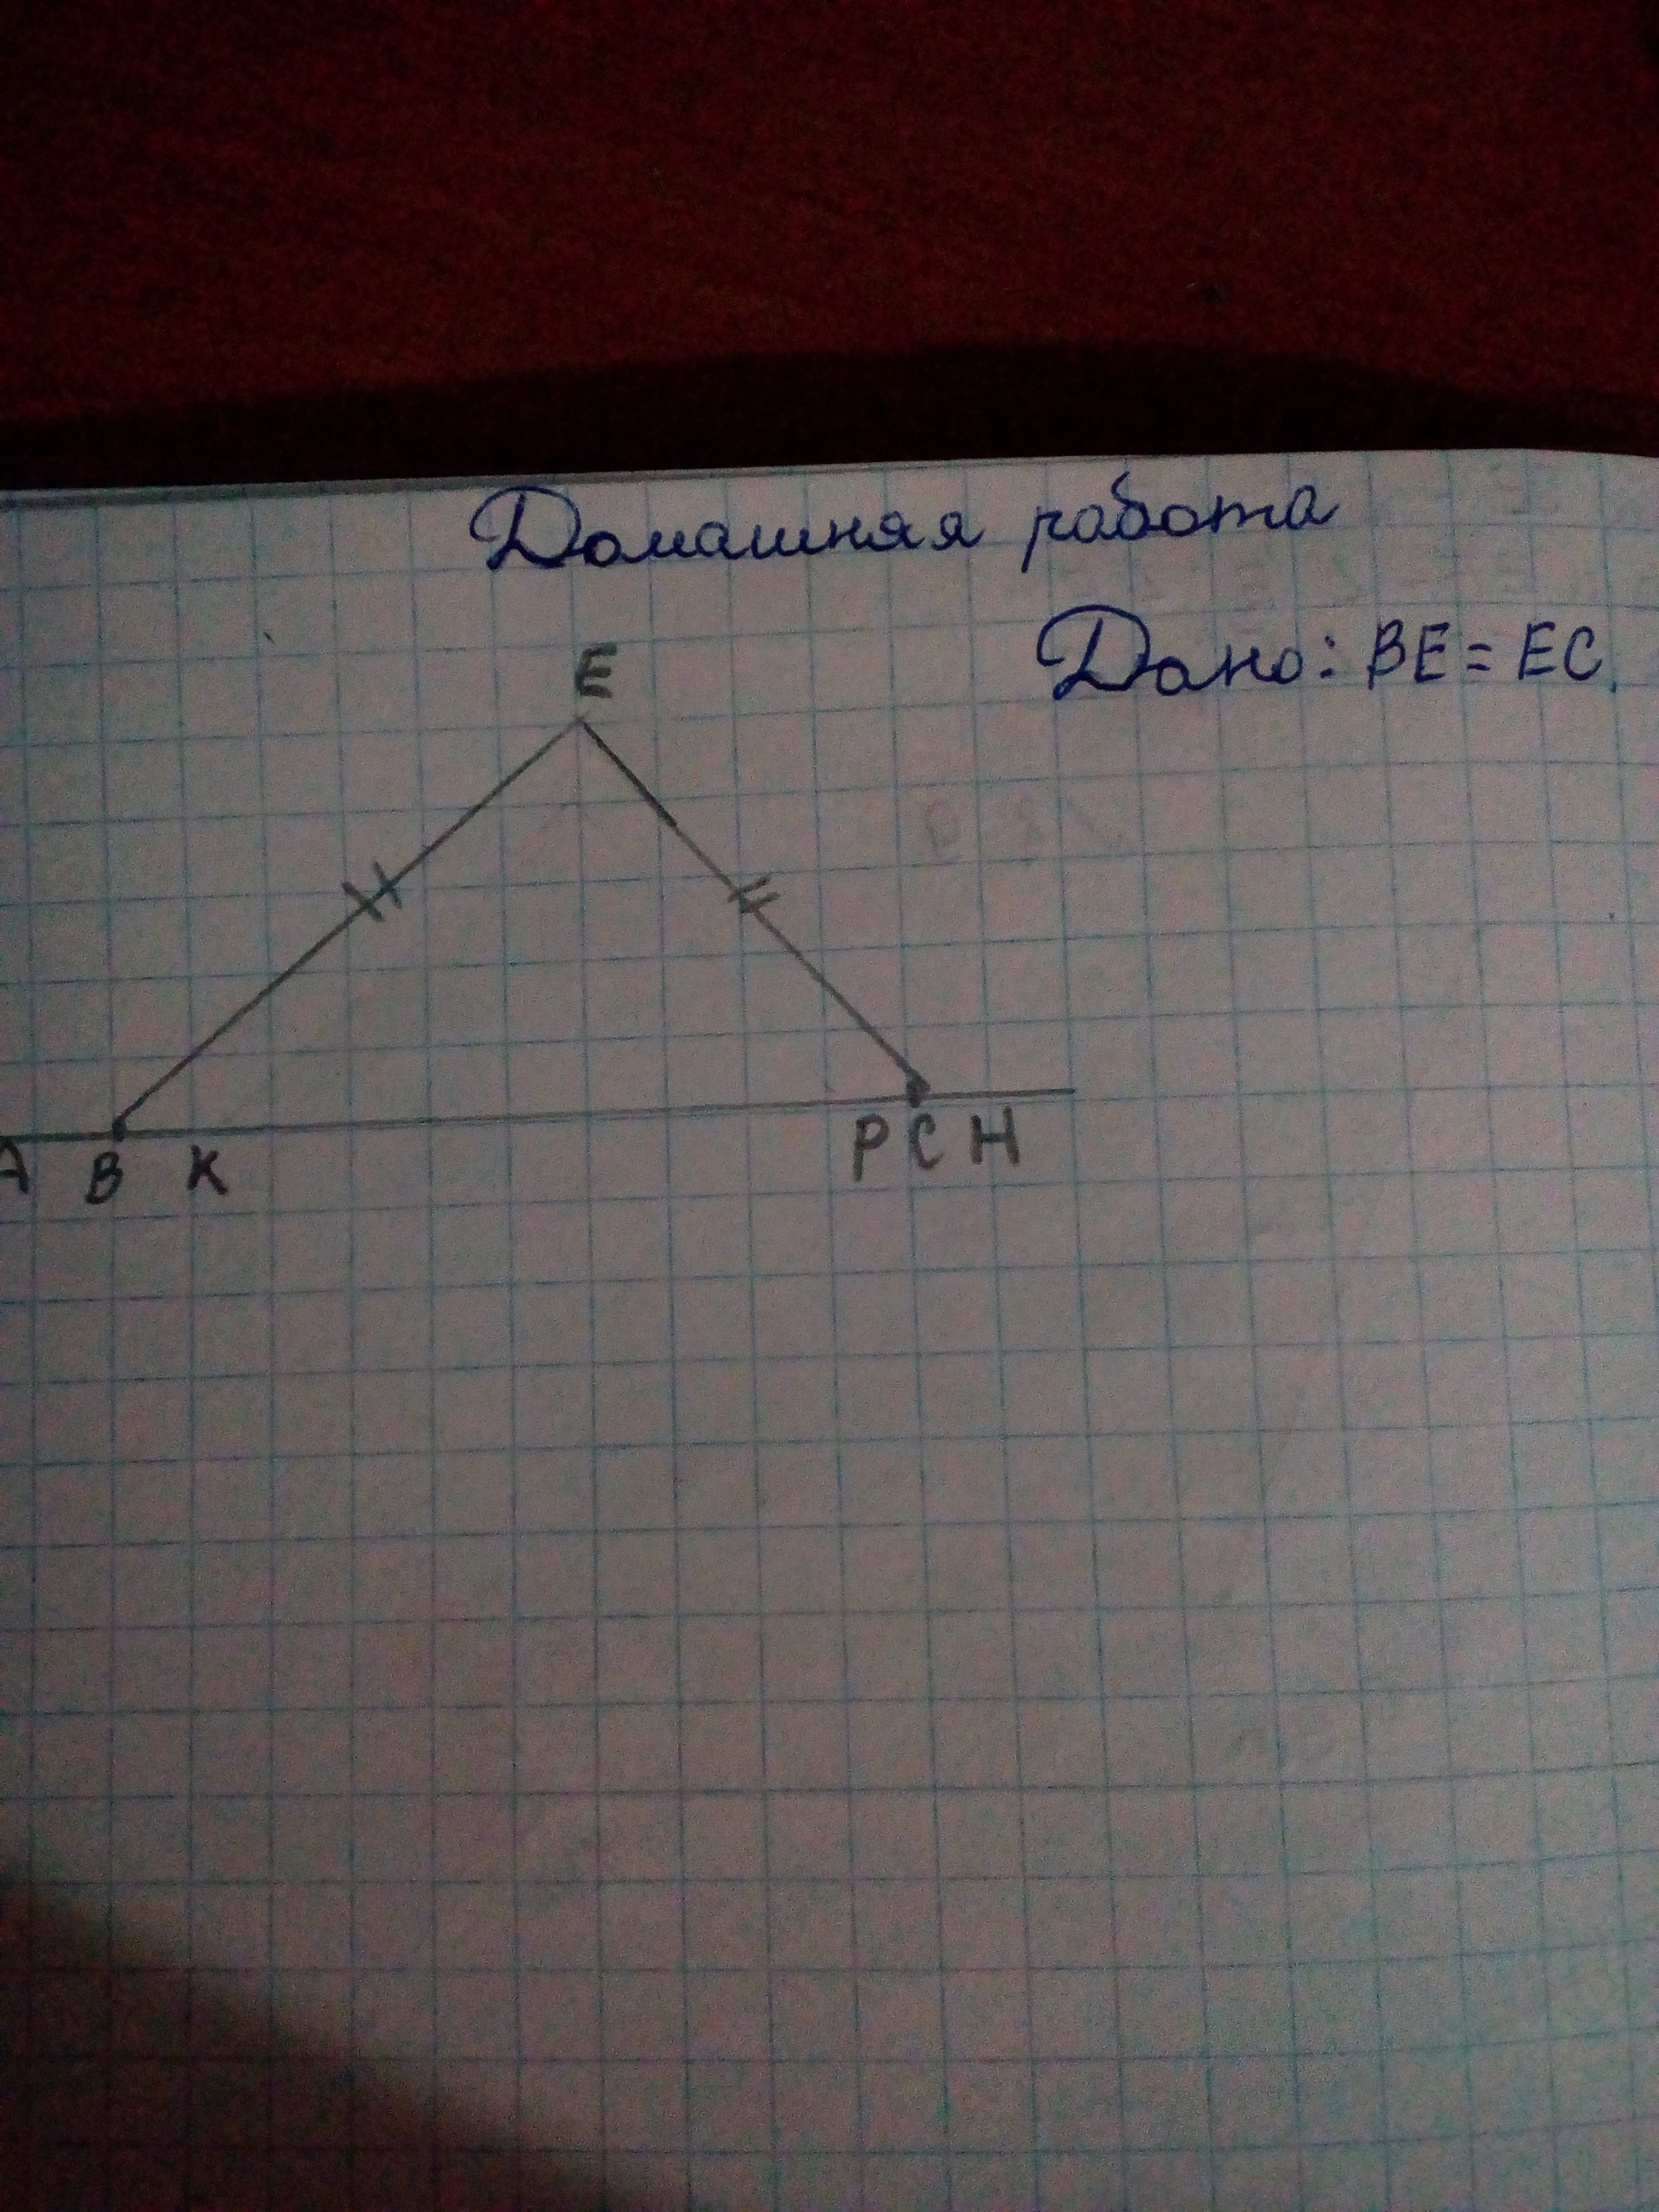 Домашняя работа
Дано: BE = EC.
E
A B K P C H